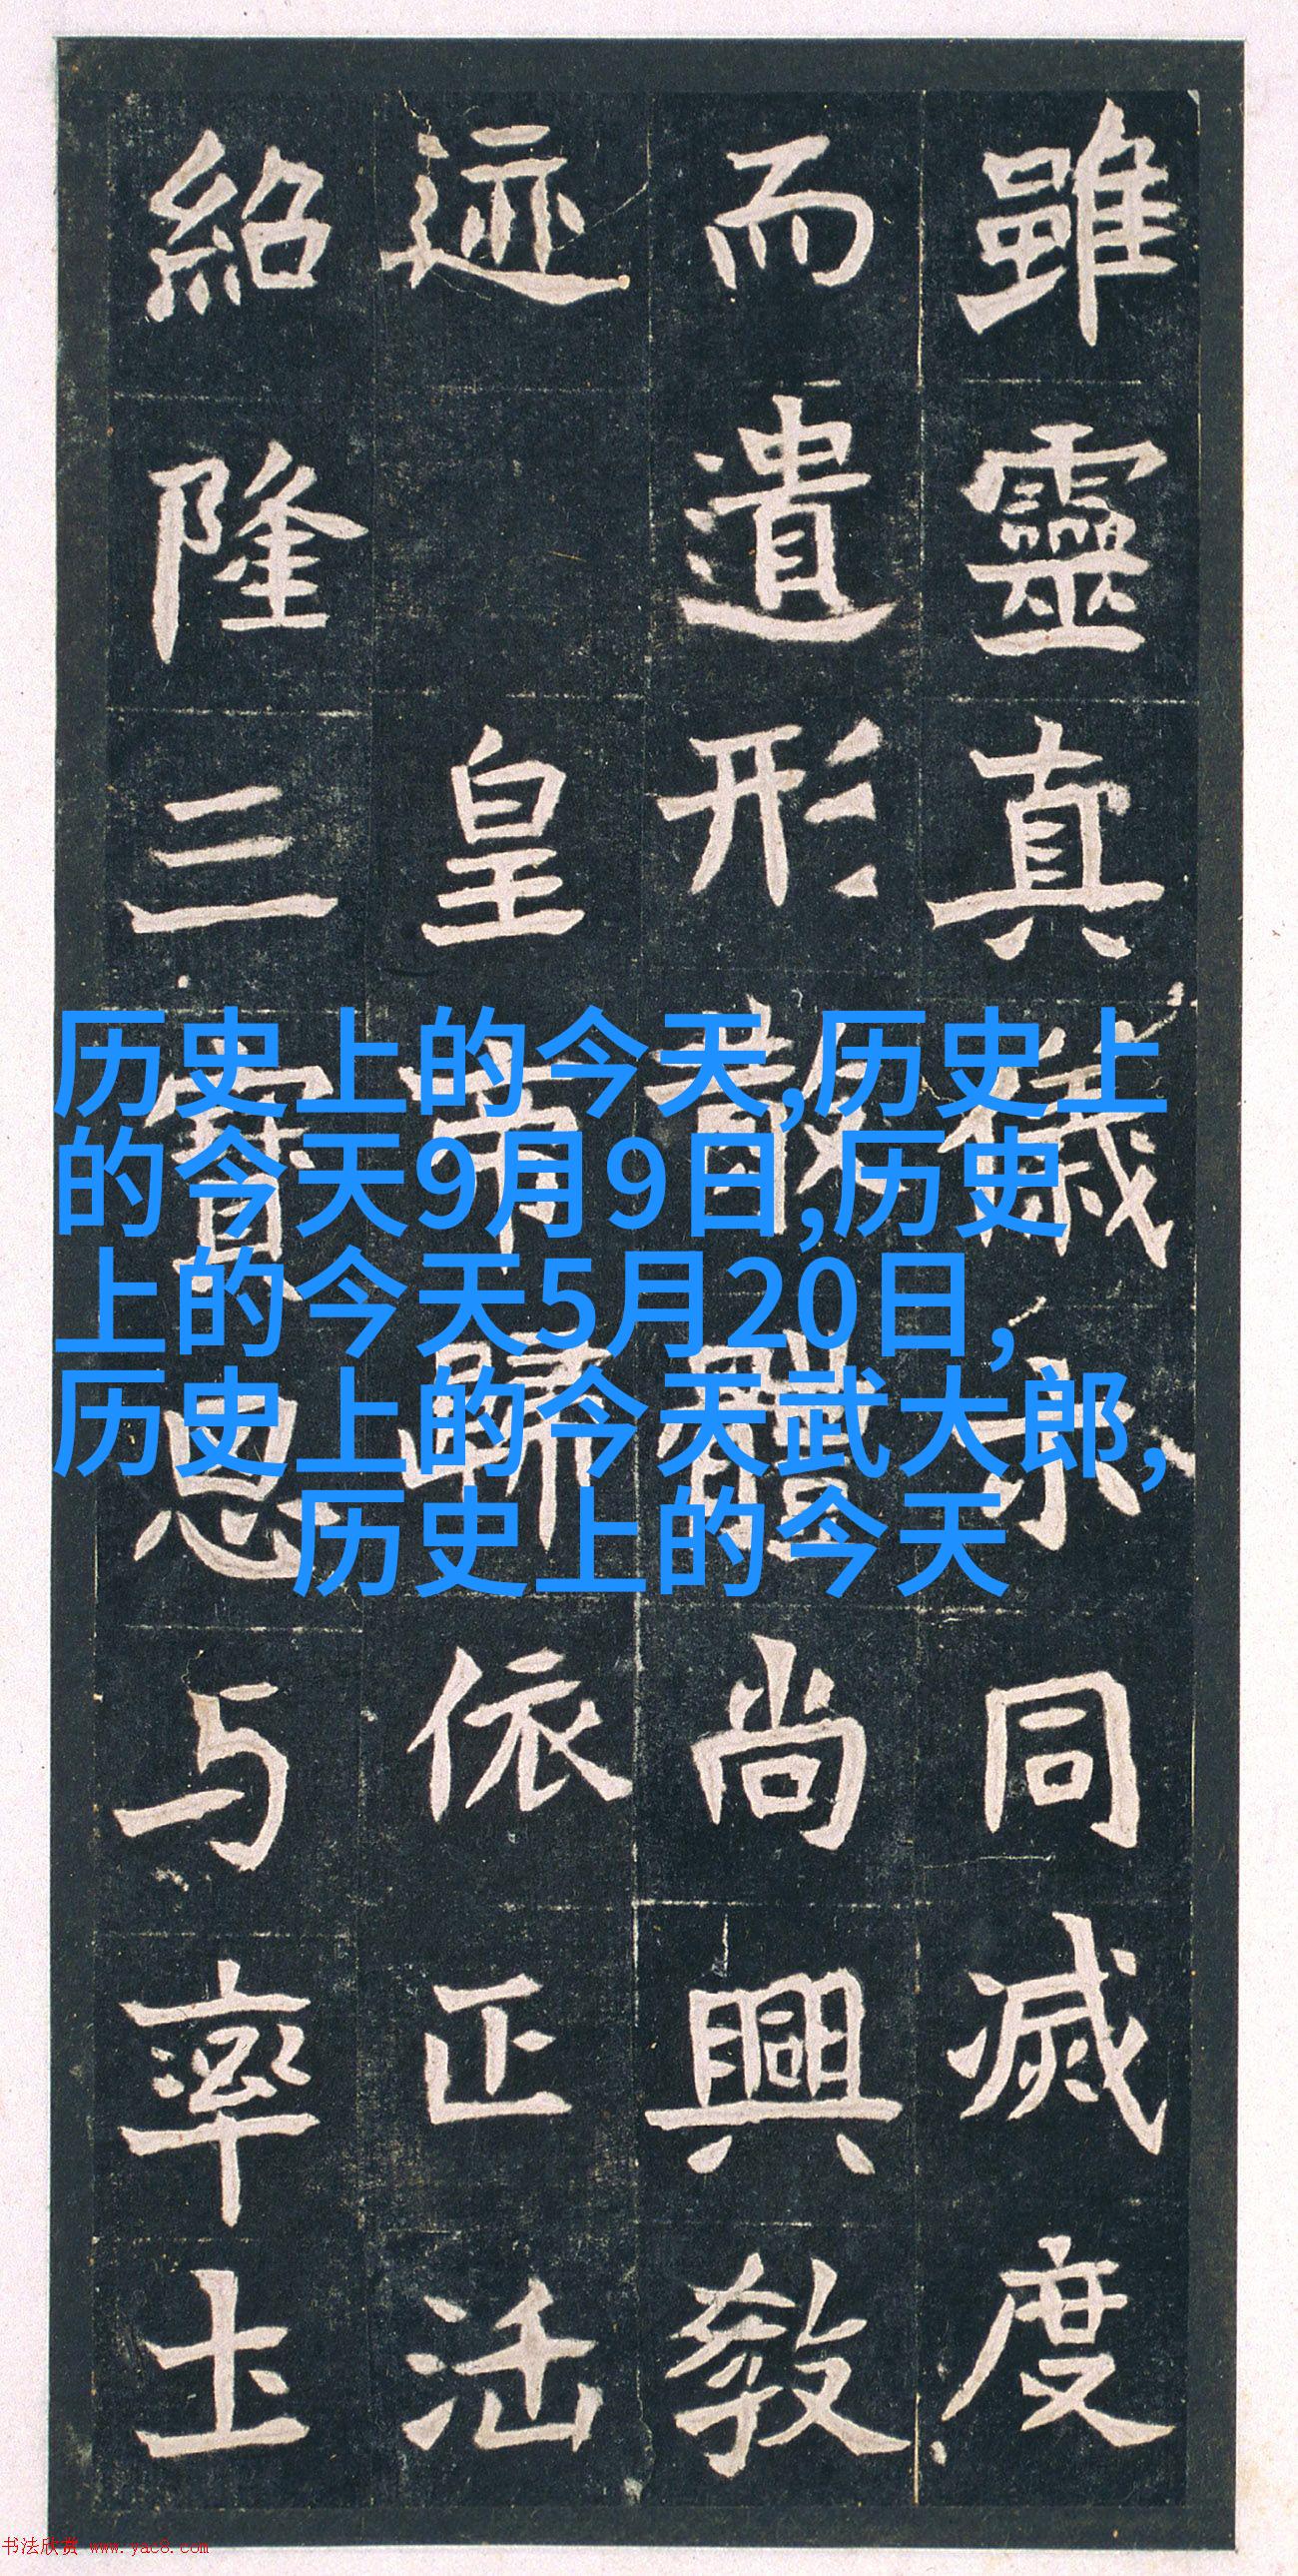 雖靈真儀示同滅度
而遺形散體尚興教
迹 皇帝歸依正法
紹隆三寶思与率土
历史上的今天,历史上
的今天9月9日,历史
上的今天5月20日,
历史上的今天武大郎,
历史上的今天
书法欣赏 www.yac8.com